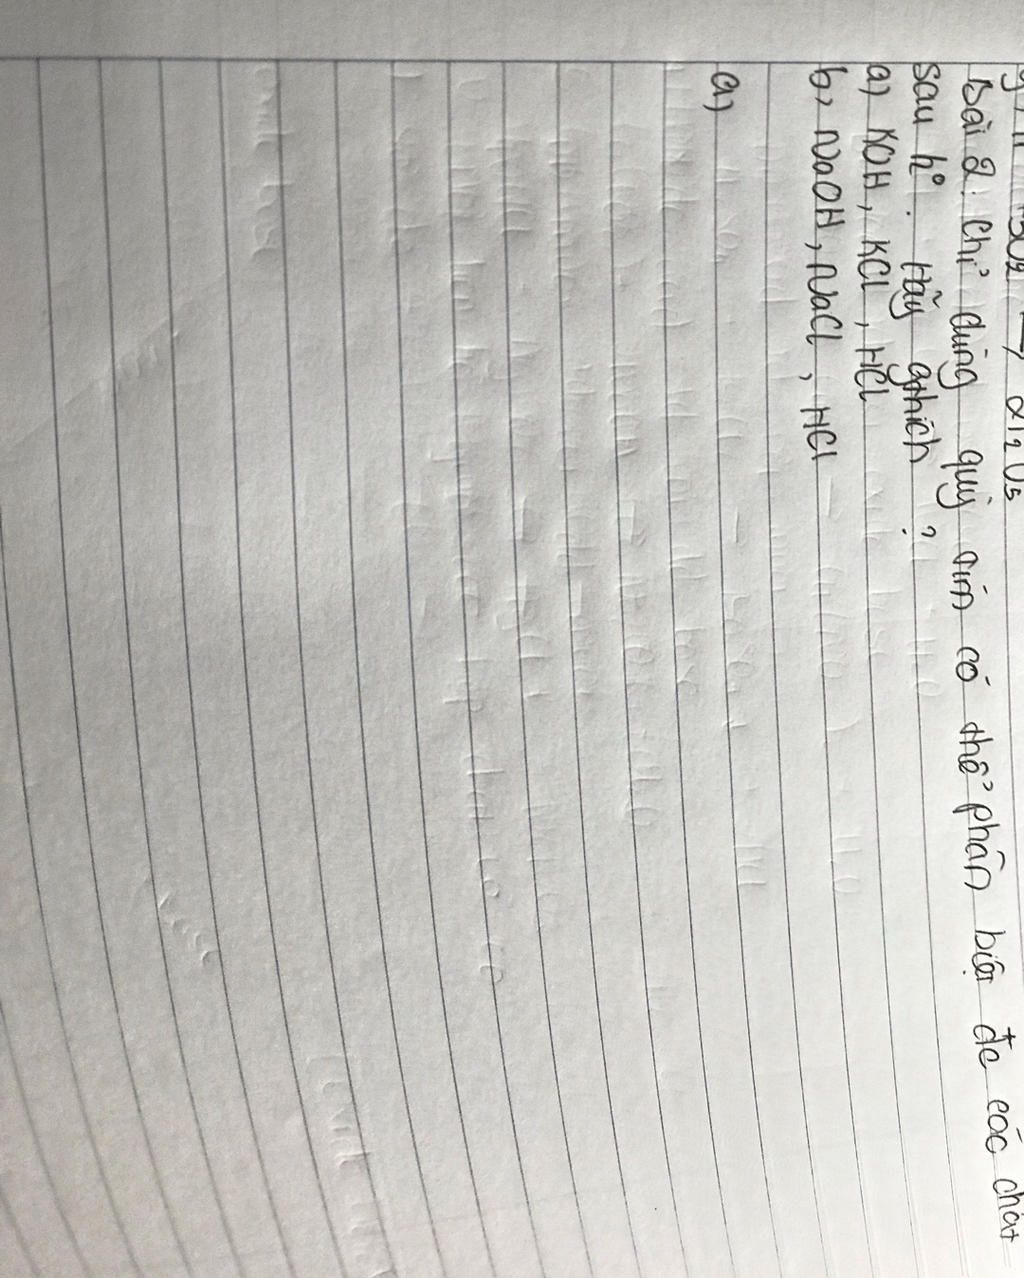 Bài 2: Chỉ dùng quỳ tím có thể phân biệt đc các chất
sau ko. Hãy gthích?
a) KOH, KCl, HCl
b, NaOH, NaCl, HCl
a)